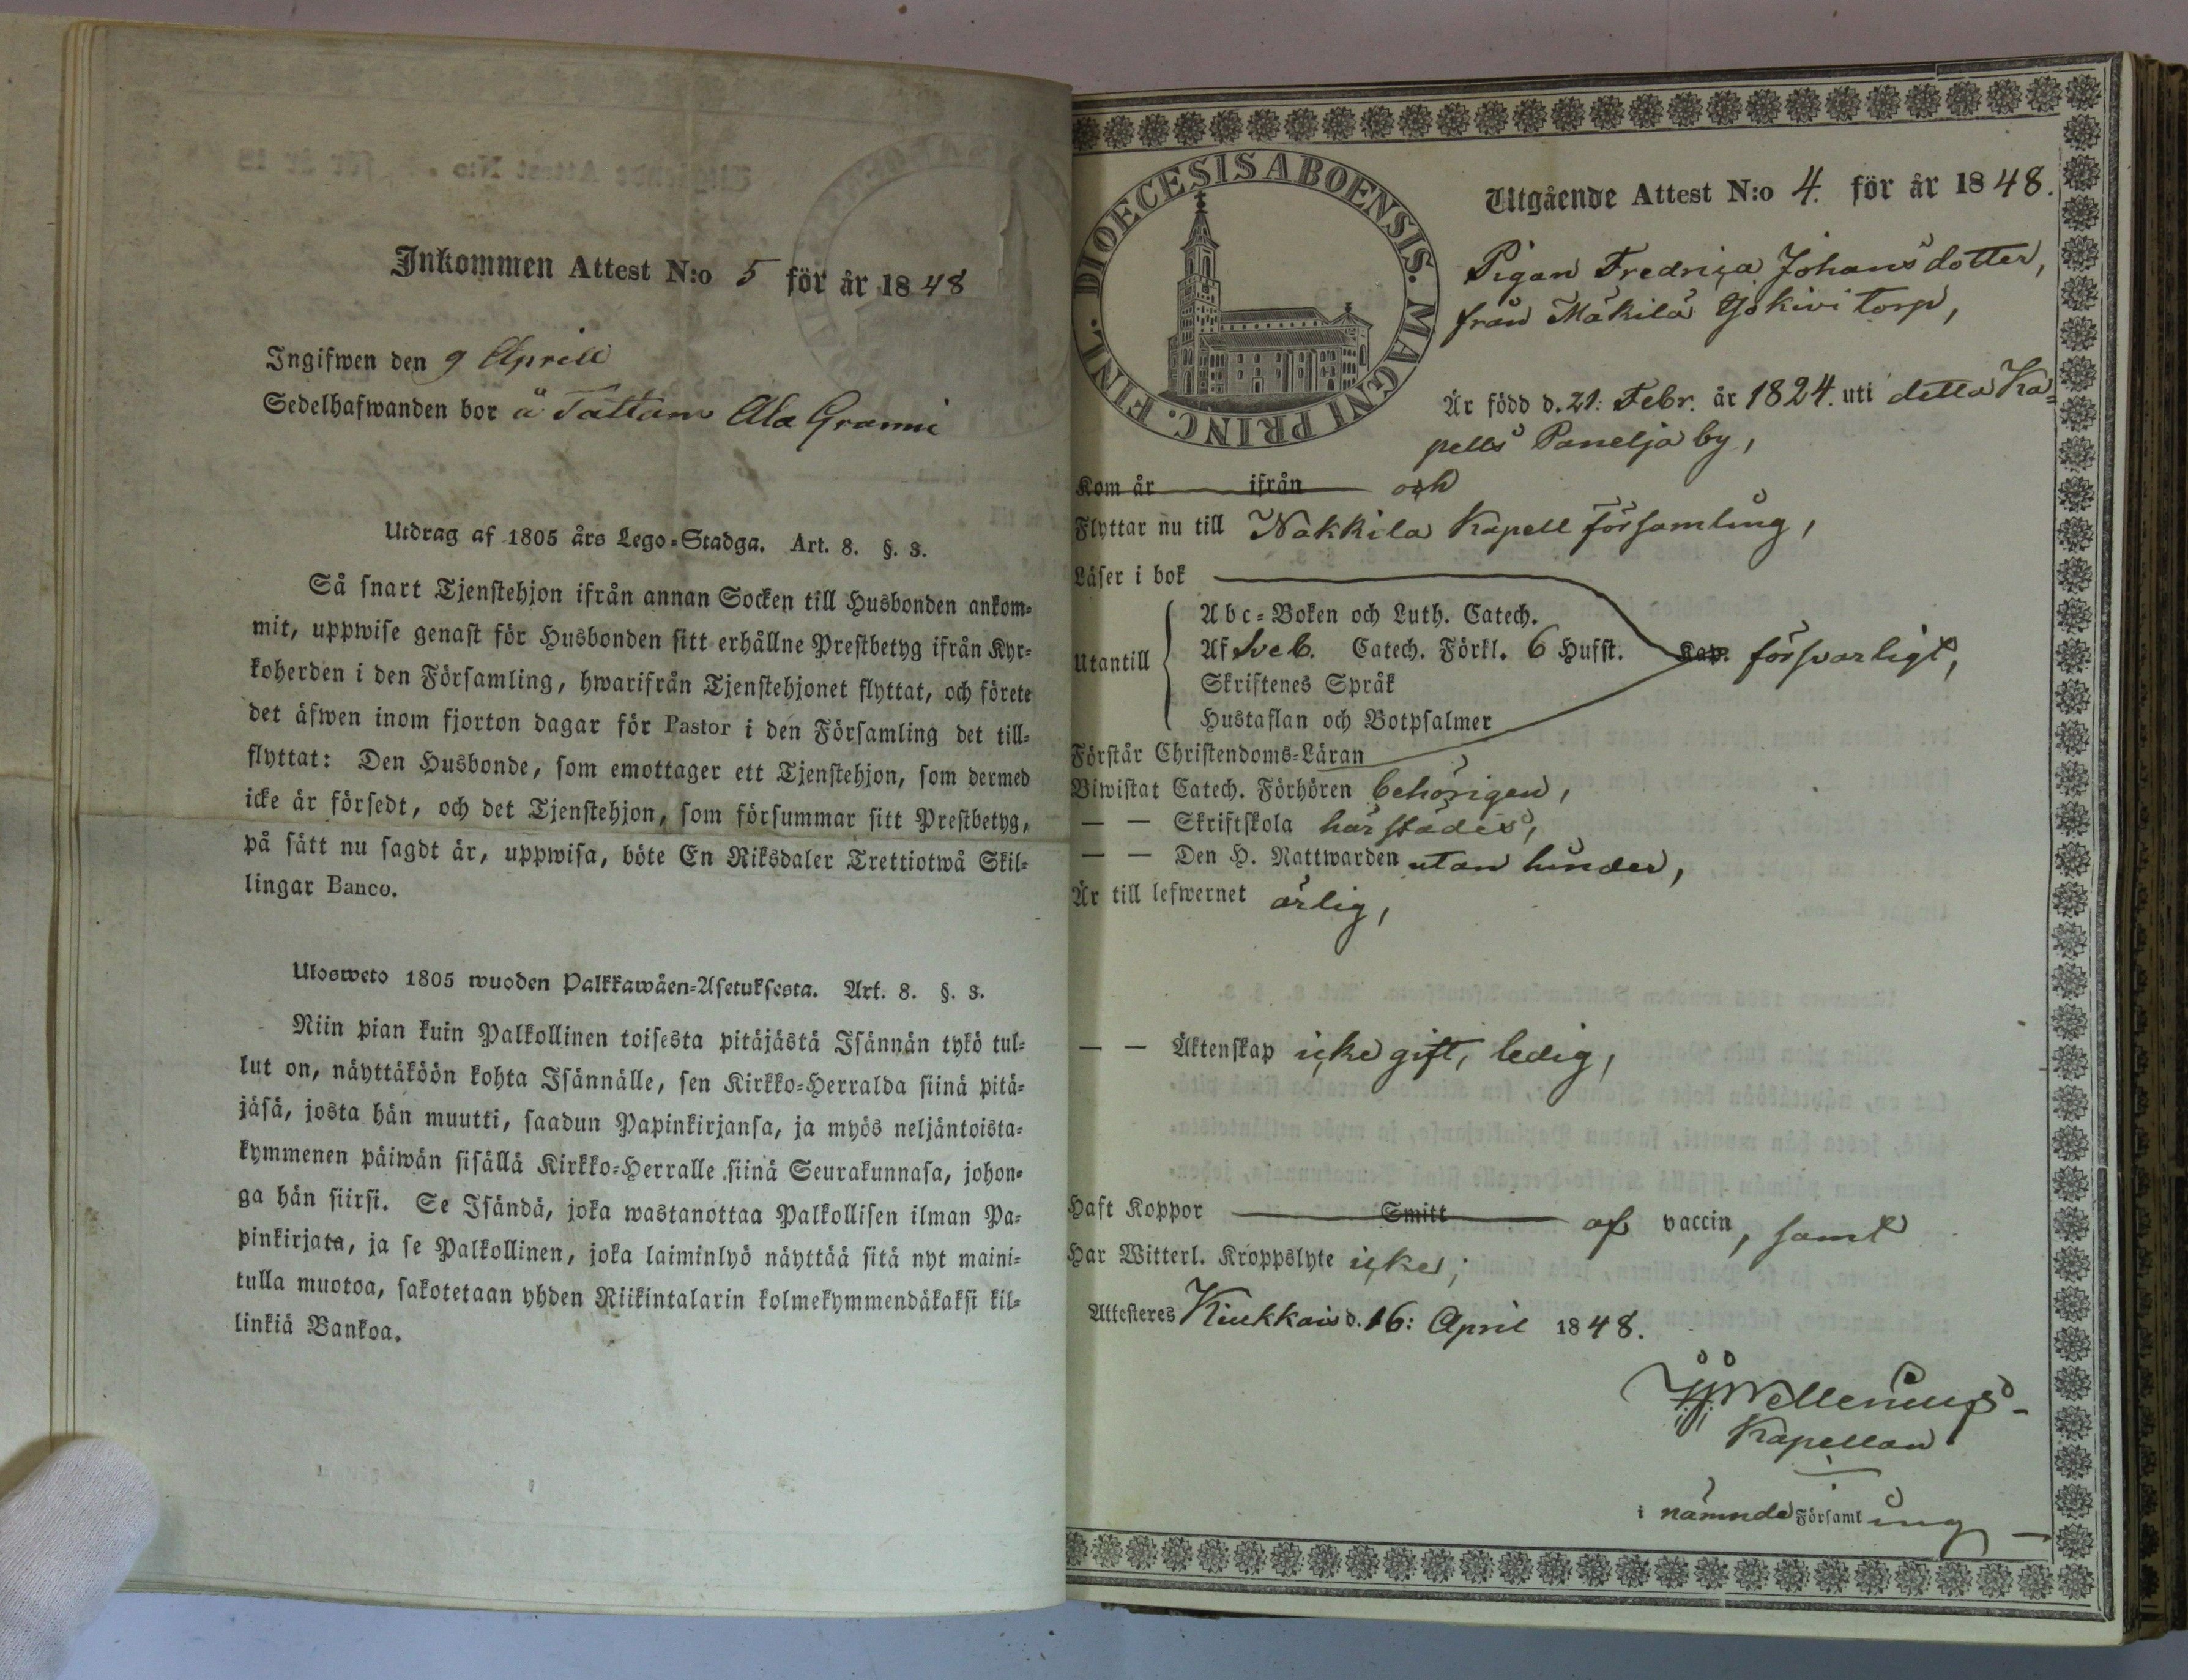 Inkommen Attest N:o 5 för år 1848
Ingifwen den 9 Aprill
Sedelhafwanden bor å Tattara Ala Granni
Utdrag af 1805 års Lego-Stadga. Art. 8. §. 3.
Så snart Tjenstehjon ifrån annan Socken till Husbonden ankom-
mit, uppwise genast för Husbonden sitt erhållne Prestbetyg ifrån Kyr-
koherden i den Församling, hwarifrån Tjenstehjonet flyttat, och förete
det äfwen inom fjorton dagar för Pastor i den Församling det till-
flyttat: Den Husbonde, som emottager ett Tjenstehjon, som dermed
icke är försedt, och det Tjenstehjon, som försummar sitt Prestbetyg,
på sätt nu sagdt är, uppwisa, böte En Riksdaler Trettiotwå Skil-
lingar Banco.
Ulosweto 1805 wuoden Palkkawäen-Asetuksesta. Art. 8. §. 3.
Niin pian kuin Palkollinen toisesta pitäjästä Isännän tykö tul-
lut on, näyttäköön kohta Isännälle, sen Kirkko-Herralda siinä pitä-
jäsä, josta hän muutti, saadun Papinkirjansa, ja myös neljäntoista-
kymmenen päiwän sisällä Kirkko-Herralle siinä Seurakunnasa, johon-
ga hän siirsi. Se Isändä, joka wastanottaa Palkollisen ilman Pa-
pinkirjata, ja se Palkollinen, joka laiminlyö näyttää sitä nyt maini-
tulla muotoa, sakotetaan yhden Riikintalarin kolmekymmendäkaksi kil-
linkiä Bankoa.
DIOECESIS ABOENSIS. MAGNI PRINC. FINL.
Utgående Attest N:o 4. för år 1848.
Pigan Fredrica Johansdotter,
från Mäkilä Yjökivi torp,
Är född d. 21: Febr. år 1824. uti detta Ka-
pells Panelja by,
Kom år ifrån och
Flyttar nu till Nakkila Kapell församling,
Läser i bok
Abc-Boken och Luth. Catech.
Utantill Af Sveb. Catech. Förkl. 6 Hufst. Kap. försvarligt,
Skriftenes Språk
Hustaflan och Botpsalmer
Förstår Christendoms-Läran
Biwistat Catech. Förhören behörigen,
— — Skriftskola härstädes,
— — Den H. Nattwarden utan hinder,
Är till lefwernet ärlig,
— — Äktenskap icke gift, ledig,
Haft Koppor Smitt af vaccin, samt
Har Witterl. Kroppslyte icke;
Attesteres Kiukkais d. 16: April 1848.
Kapellan
i nämnde Församling